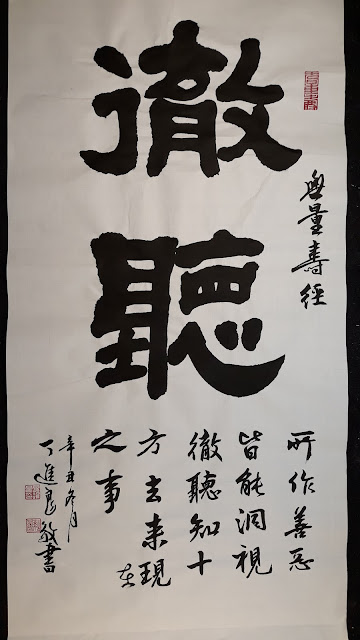 徹聽
無量壽經
所作善惡
皆能洞視
徹聽知十
方去来現
在
之事
辛丑冬月
丁進良敬書